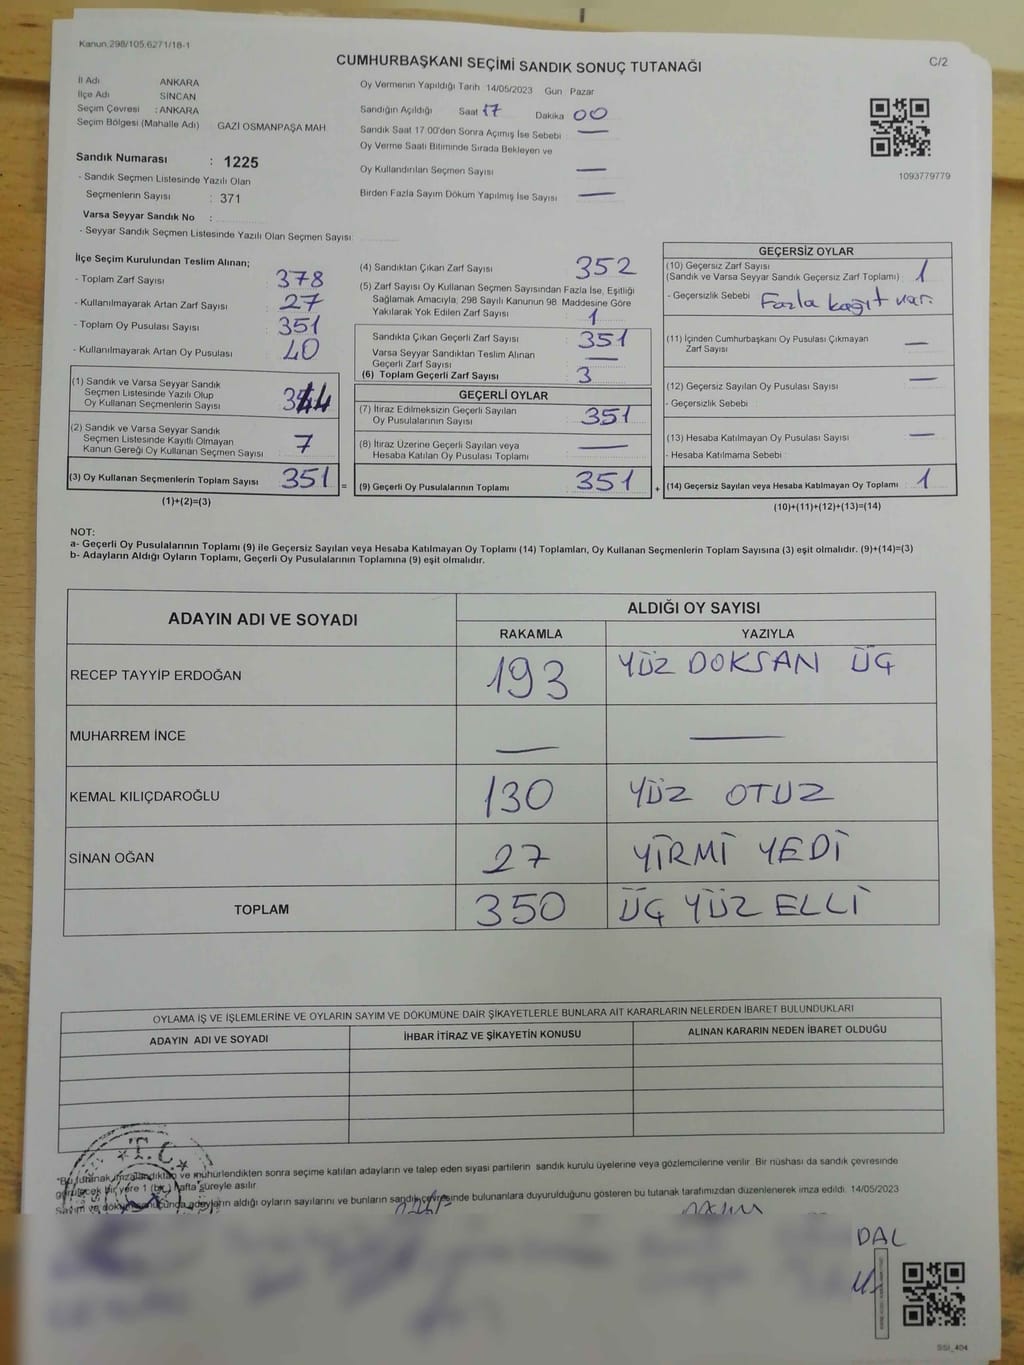 Kanun.298/105.6271/18-1
CUMHURBAŞKANI SEÇİMİ SANDIK SONUÇ TUTANAĞI
C/2
İl Adı ANKARA
İlçe Adı SİNCAN
Seçim Çevresi : ANKARA
Seçim Bölgesi (Mahalle Adı) GAZİ OSMANPAŞA MAH
Sandık Numarası : 1225
- Sandık Seçmen Listesinde Yazılı Olan
Seçmenlerin Sayısı : 371
Varsa Seyyar Sandık No :
- Seyyar Sandık Seçmen Listesinde Yazılı Olan Seçmen Sayısı
Oy Vermenin Yapıldığı Tarih 14/05/2023 Gün Pazar
Sandığın Açıldığı Saat 17 Dakika 00
Sandık Saat 17 00'den Sonra Açımış İse Sebebi —
Oy Verme Saati Bitiminde Sırada Bekleyen ve
Oy Kullandırılan Seçmen Sayısı —
Birden Fazla Sayım Döküm Yapılmış İse Sayısı —
1093779779
İlçe Seçim Kurulundan Teslim Alınan;
- Toplam Zarf Sayısı 378
- Kullanılmayarak Artan Zarf Sayısı 27
- Toplam Oy Pusulası Sayısı 351
- Kullanılmayarak Artan Oy Pusulası 40
(1) Sandık ve Varsa Seyyar Sandık
Seçmen Listesinde Yazılı Olup
Oy Kullanan Seçmenlerin Sayısı 344
(2) Sandık ve Varsa Seyyar Sandık
Seçmen Listesinde Kayıtlı Olmayan
Kanun Gereği Oy Kullanan Seçmen Sayısı 7
(3) Oy Kullanan Seçmenlerin Toplam Sayısı 351 =
(1)+(2)=(3)
(4) Sandıktan Çıkan Zarf Sayısı 352
(5) Zarf Sayısı Oy Kullanan Seçmen Sayısından Fazla İse, Eşitliği
Sağlamak Amacıyla; 298 Sayılı Kanunun 98 Maddesine Göre
Yakılarak Yok Edilen Zarf Sayısı 1
Sandıkta Çıkan Geçerli Zarf Sayısı 351
Varsa Seyyar Sandıktan Teslim Alınan
Geçerli Zarf Sayısı —
(6) Toplam Geçerli Zarf Sayısı 3
GEÇERLİ OYLAR
(7) İtiraz Edilmeksizin Geçerli Sayılan
Oy Pusulalarının Sayısı 351
(8) İtiraz Üzerine Geçerli Sayılan veya
Hesaba Katılan Oy Pusulası Toplamı —
(9) Geçerli Oy Pusulalarının Toplamı 351 +
GEÇERSİZ OYLAR
(10) Geçersiz Zarf Sayısı
(Sandık ve Varsa Seyyar Sandık Geçersiz Zarf Toplamı) 1
- Geçersizlik Sebebi Fazla kağıt var.
(11) İçinden Cumhurbaşkanı Oy Pusulası Çıkmayan
Zarf Sayısı —
(12) Geçersiz Sayılan Oy Pusulası Sayısı —
- Geçersizlik Sebebi
(13) Hesaba Katılmayan Oy Pusulası Sayısı —
- Hesaba Katılmama Sebebi
(14) Geçersiz Sayılan veya Hesaba Katılmayan Oy Toplamı 1
(10)+(11)+(12)+(13)=(14)
NOT:
a- Geçerli Oy Pusulalarının Toplamı (9) ile Geçersiz Sayılan veya Hesaba Katılmayan Oy Toplamı (14) Toplamları, Oy Kullanan Seçmenlerin Toplam Sayısına (3) eşit olmalıdır. (9)+(14)=(3)
b- Adayların Aldığı Oyların Toplamı, Geçerli Oy Pusulalarının Toplamına (9) eşit olmalıdır.
ADAYIN ADI VE SOYADI ALDIĞI OY SAYISI
RAKAMLA YAZIYLA
RECEP TAYYİP ERDOĞAN 193 YÜZ DOKSAN ÜÇ
MUHARREM İNCE — —
KEMAL KILIÇDAROĞLU 130 YÜZ OTUZ
SİNAN OĞAN 27 YİRMİ YEDİ
TOPLAM 350 ÜÇ YÜZ ELLİ
OYLAMA İŞ VE İŞLEMLERİNE VE OYLARIN SAYIM VE DÖKÜMÜNE DAİR ŞİKAYETLERLE BUNLARA AİT KARARLARIN NELERDEN İBARET BULUNDUKLARI
ADAYIN ADI VE SOYADI İHBAR İTİRAZ VE ŞİKAYETİN KONUSU ALINAN KARARIN NEDEN İBARET OLDUĞU
T.C.
"Bu tutanak imzalandıktan ve mühürlendikten sonra seçime katılan adayların ve talep eden siyasi partilerin sandık kurulu üyelerine veya gözlemcilerine verilir. Bir nüshası da sandık çevresinde
görülecek bir yere 1 (bir) hafta süreyle asılır.
Sayım ve dökümü sonucunda adayların aldığı oyların sayılarını ve bunların sandık çevresinde bulunanlara duyurulduğunu gösteren bu tutanak tarafımızdan düzenlenerek imza edildi. 14/05/2023
DAL
SSI_404